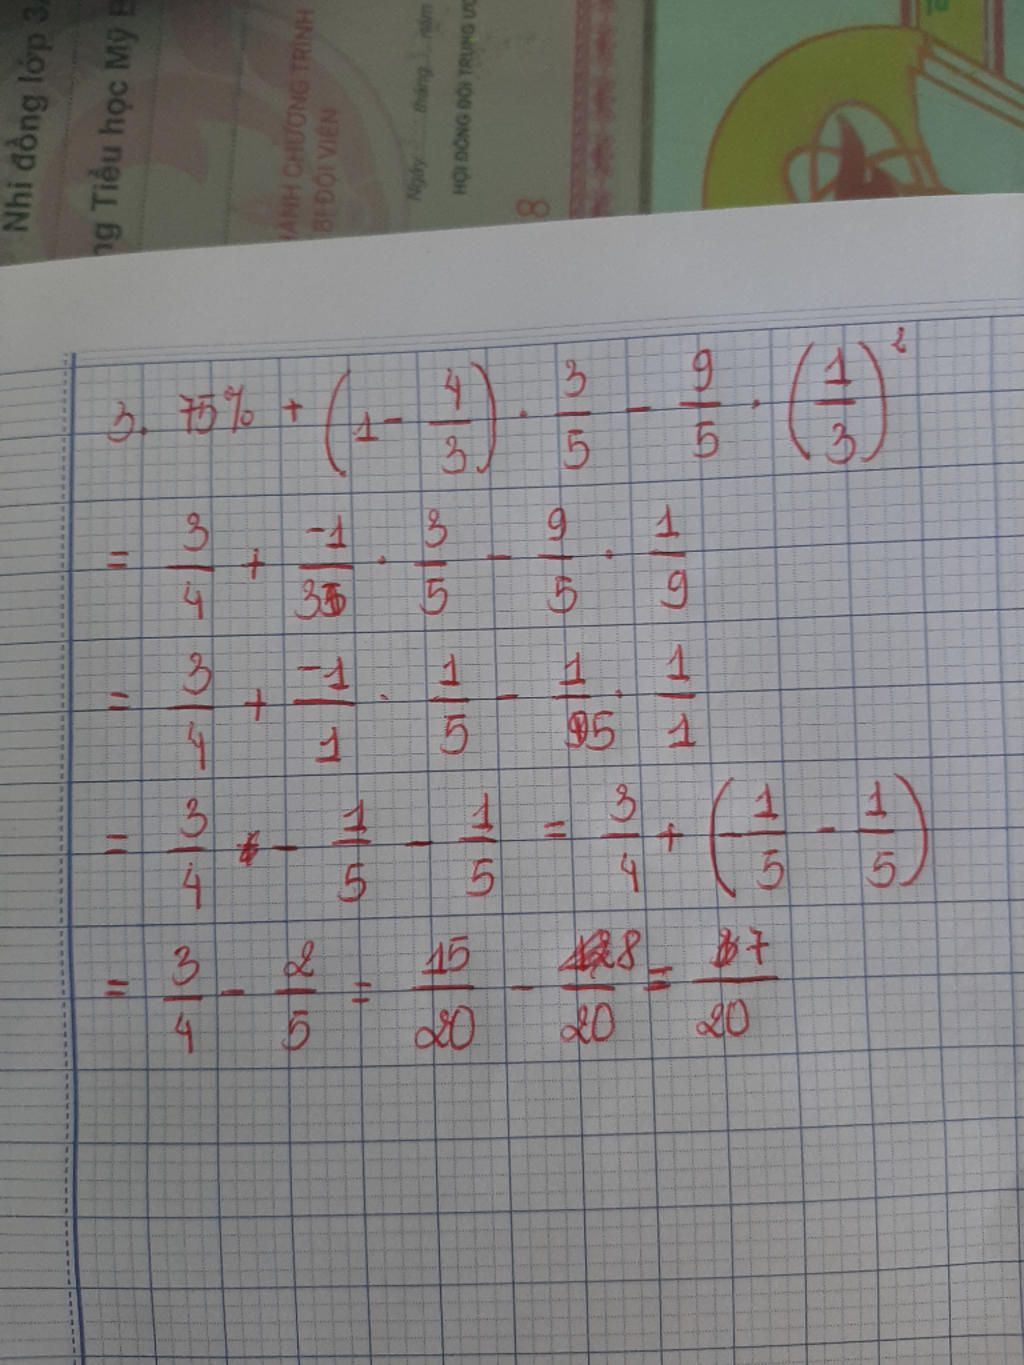 Nhi đồng lớp 3
ng Tiểu học Mỹ
HÀNH CHƯƠNG TRÌNH
BỊ ĐỘI VIÊN
Ngày...... tháng.... năm
HỘI ĐỒNG ĐỘI TRUNG ƯƠ
8
3. 75% + (1 - 4/3) . 3/5 - 9/5 . (1/3)²
= 3/4 + -1/3 . 3/5 - 9/5 . 1/9
= 3/4 + -1/1 . 1/5 - 1/5 . 1/1
= 3/4 - 1/5 - 1/5 = 3/4 + (-1/5 - 1/5)
= 3/4 - 2/5 = 15/20 - 8/20 = 7/20